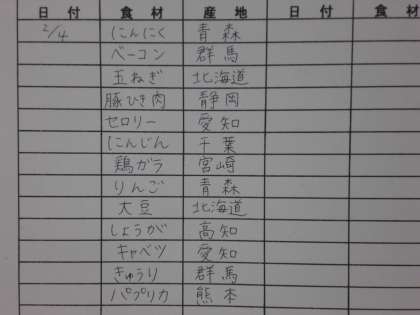 日付 食材 産地 日付 食材
2/4 にんにく 青森
ベーコン 群馬
玉ねぎ 北海道
豚ひき肉 静岡
セロリー 愛知
にんじん 千葉
鶏ガラ 宮崎
りんご 青森
大豆 北海道
しょうが 高知
キャベツ 愛知
きゅうり 群馬
パプリカ 熊本